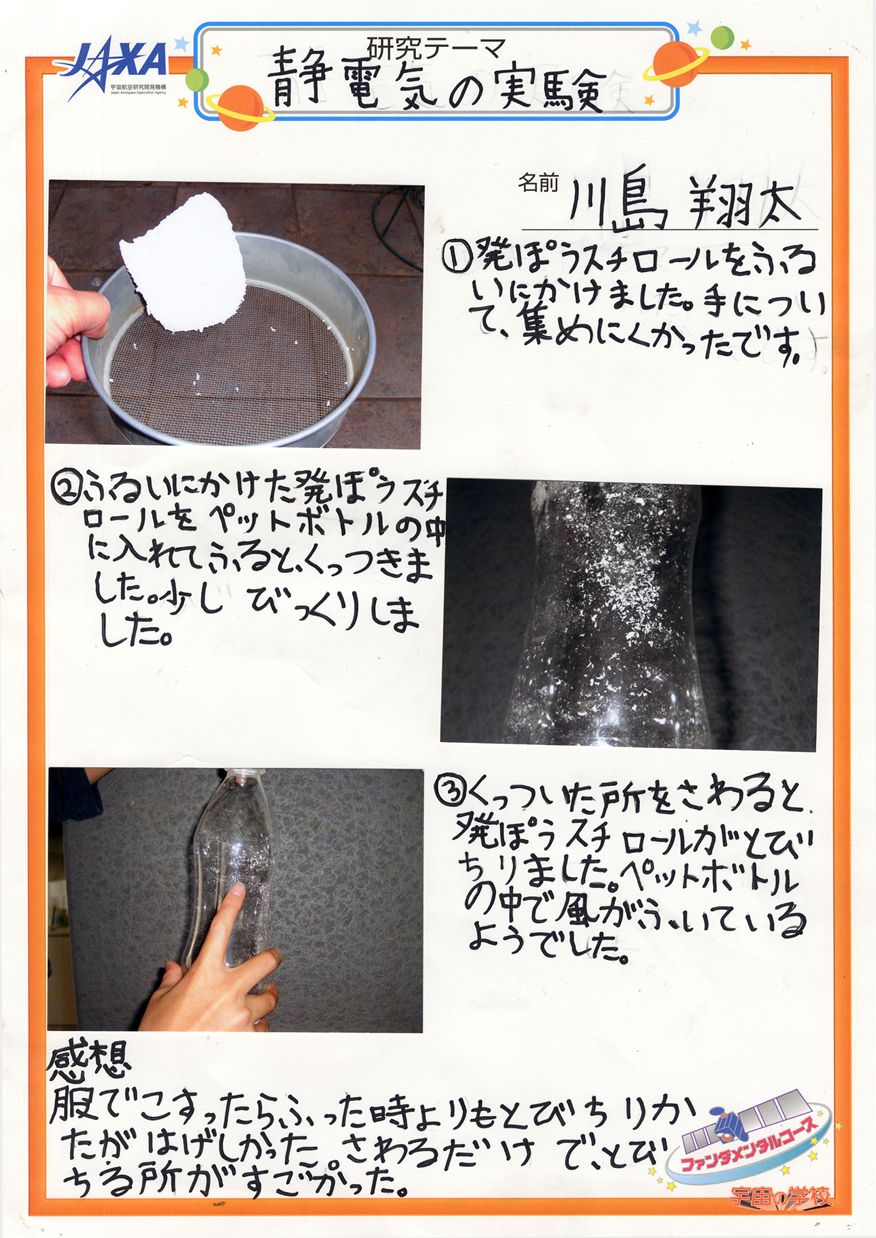 JAXA
宇宙航空研究開発機構
Japan Aerospace Exploration Agency
研究テーマ
静電気の実験
名前 川島 翔太
①発ぽうスチロールをふる
いにかけました。手につい
て、集めにくかったです。
②ふるいにかけた発ぽうスチ
ロールをペットボトルの中
に入れてふると、くっつきま
した。少しびっくりしま
した。
③くっついた所をさわると、
発ぽうスチロールがとび
ちりました。ペットボトル
の中で風がふいている
ようでした。
感想
服でこすったらふった時よりもとびちりか
たがはげしかった。さわるだけで、とび
ちる所がすごかった。
ファンダメンタルコース
宇宙の学校